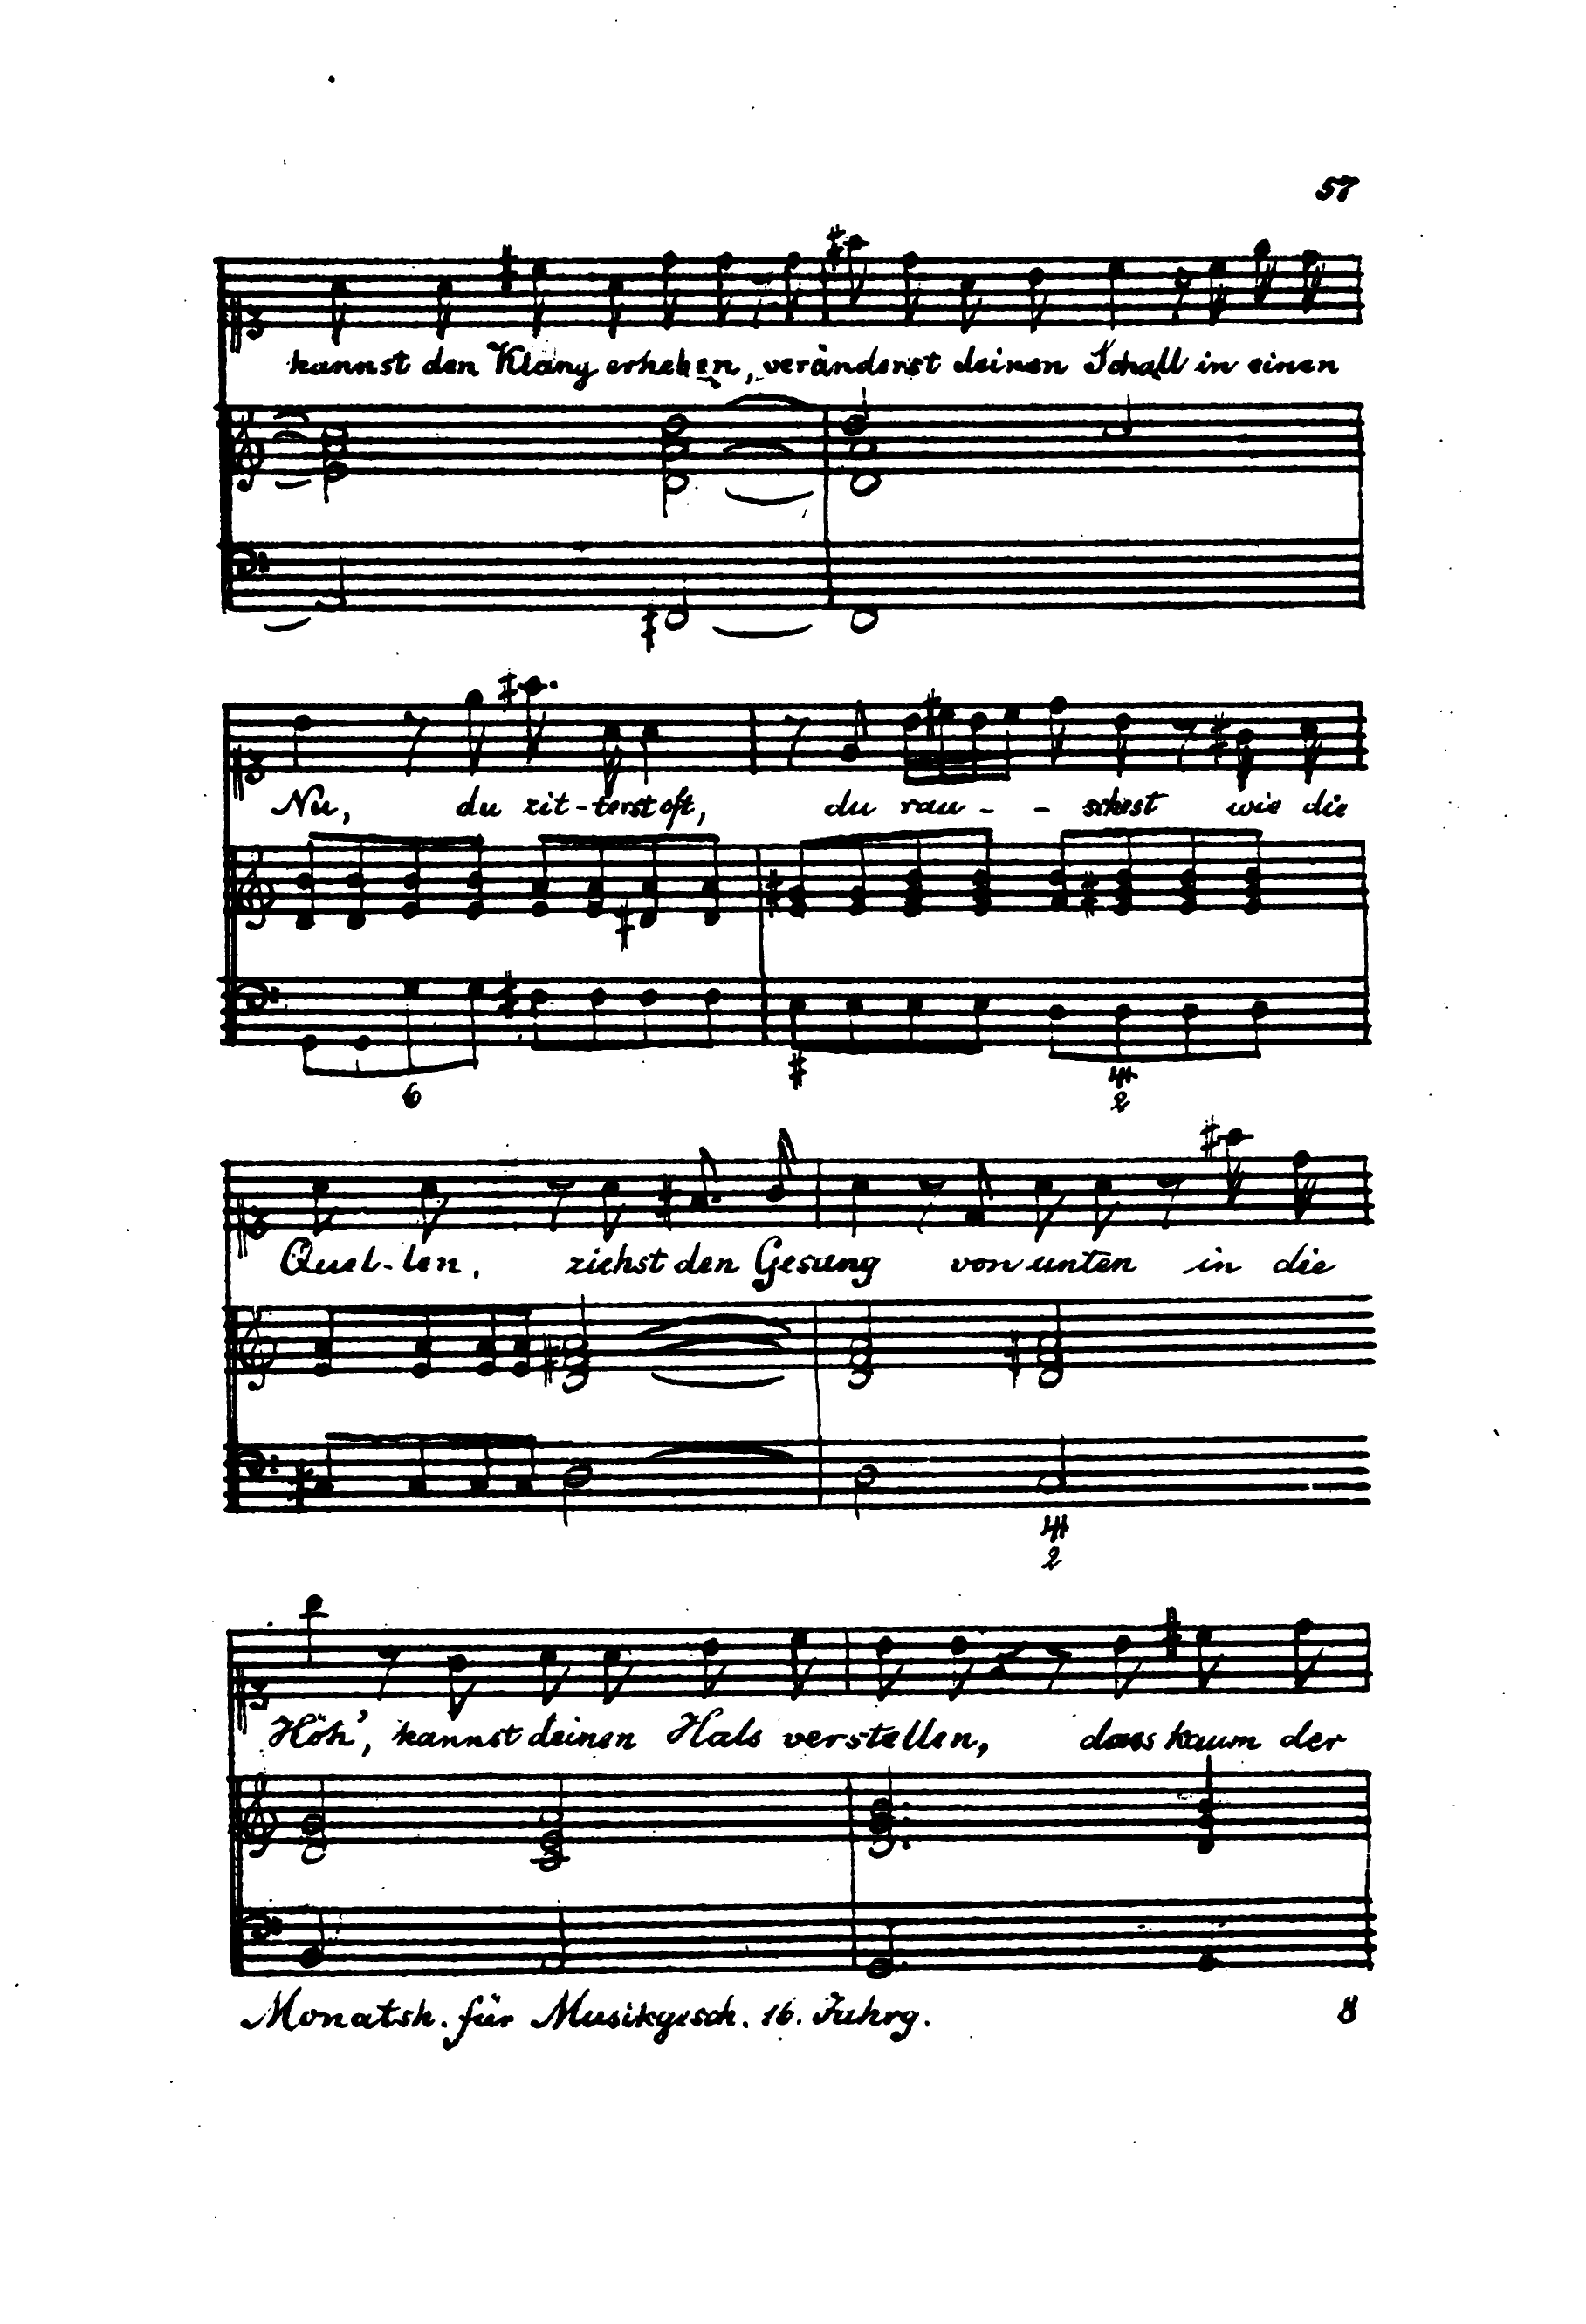 57
kannst den Klang erheben, veränderst deinen Schall in einen
Nu, du zit-terst oft, du rau - - schest wie die
6
4 2
Quel-len, ziehst den Gesang von unten in die
4 2
Höh', kannst deinen Hals verstellen, dass kaum der
Monatsh. für Musikgesch. 16. Jahrg. 8